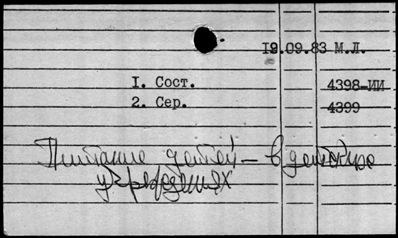 19.09.83 М.Л.
1. Сост. 4398-ИИ
2. Сер. 4399
Питание детей – в детских
учреждениях